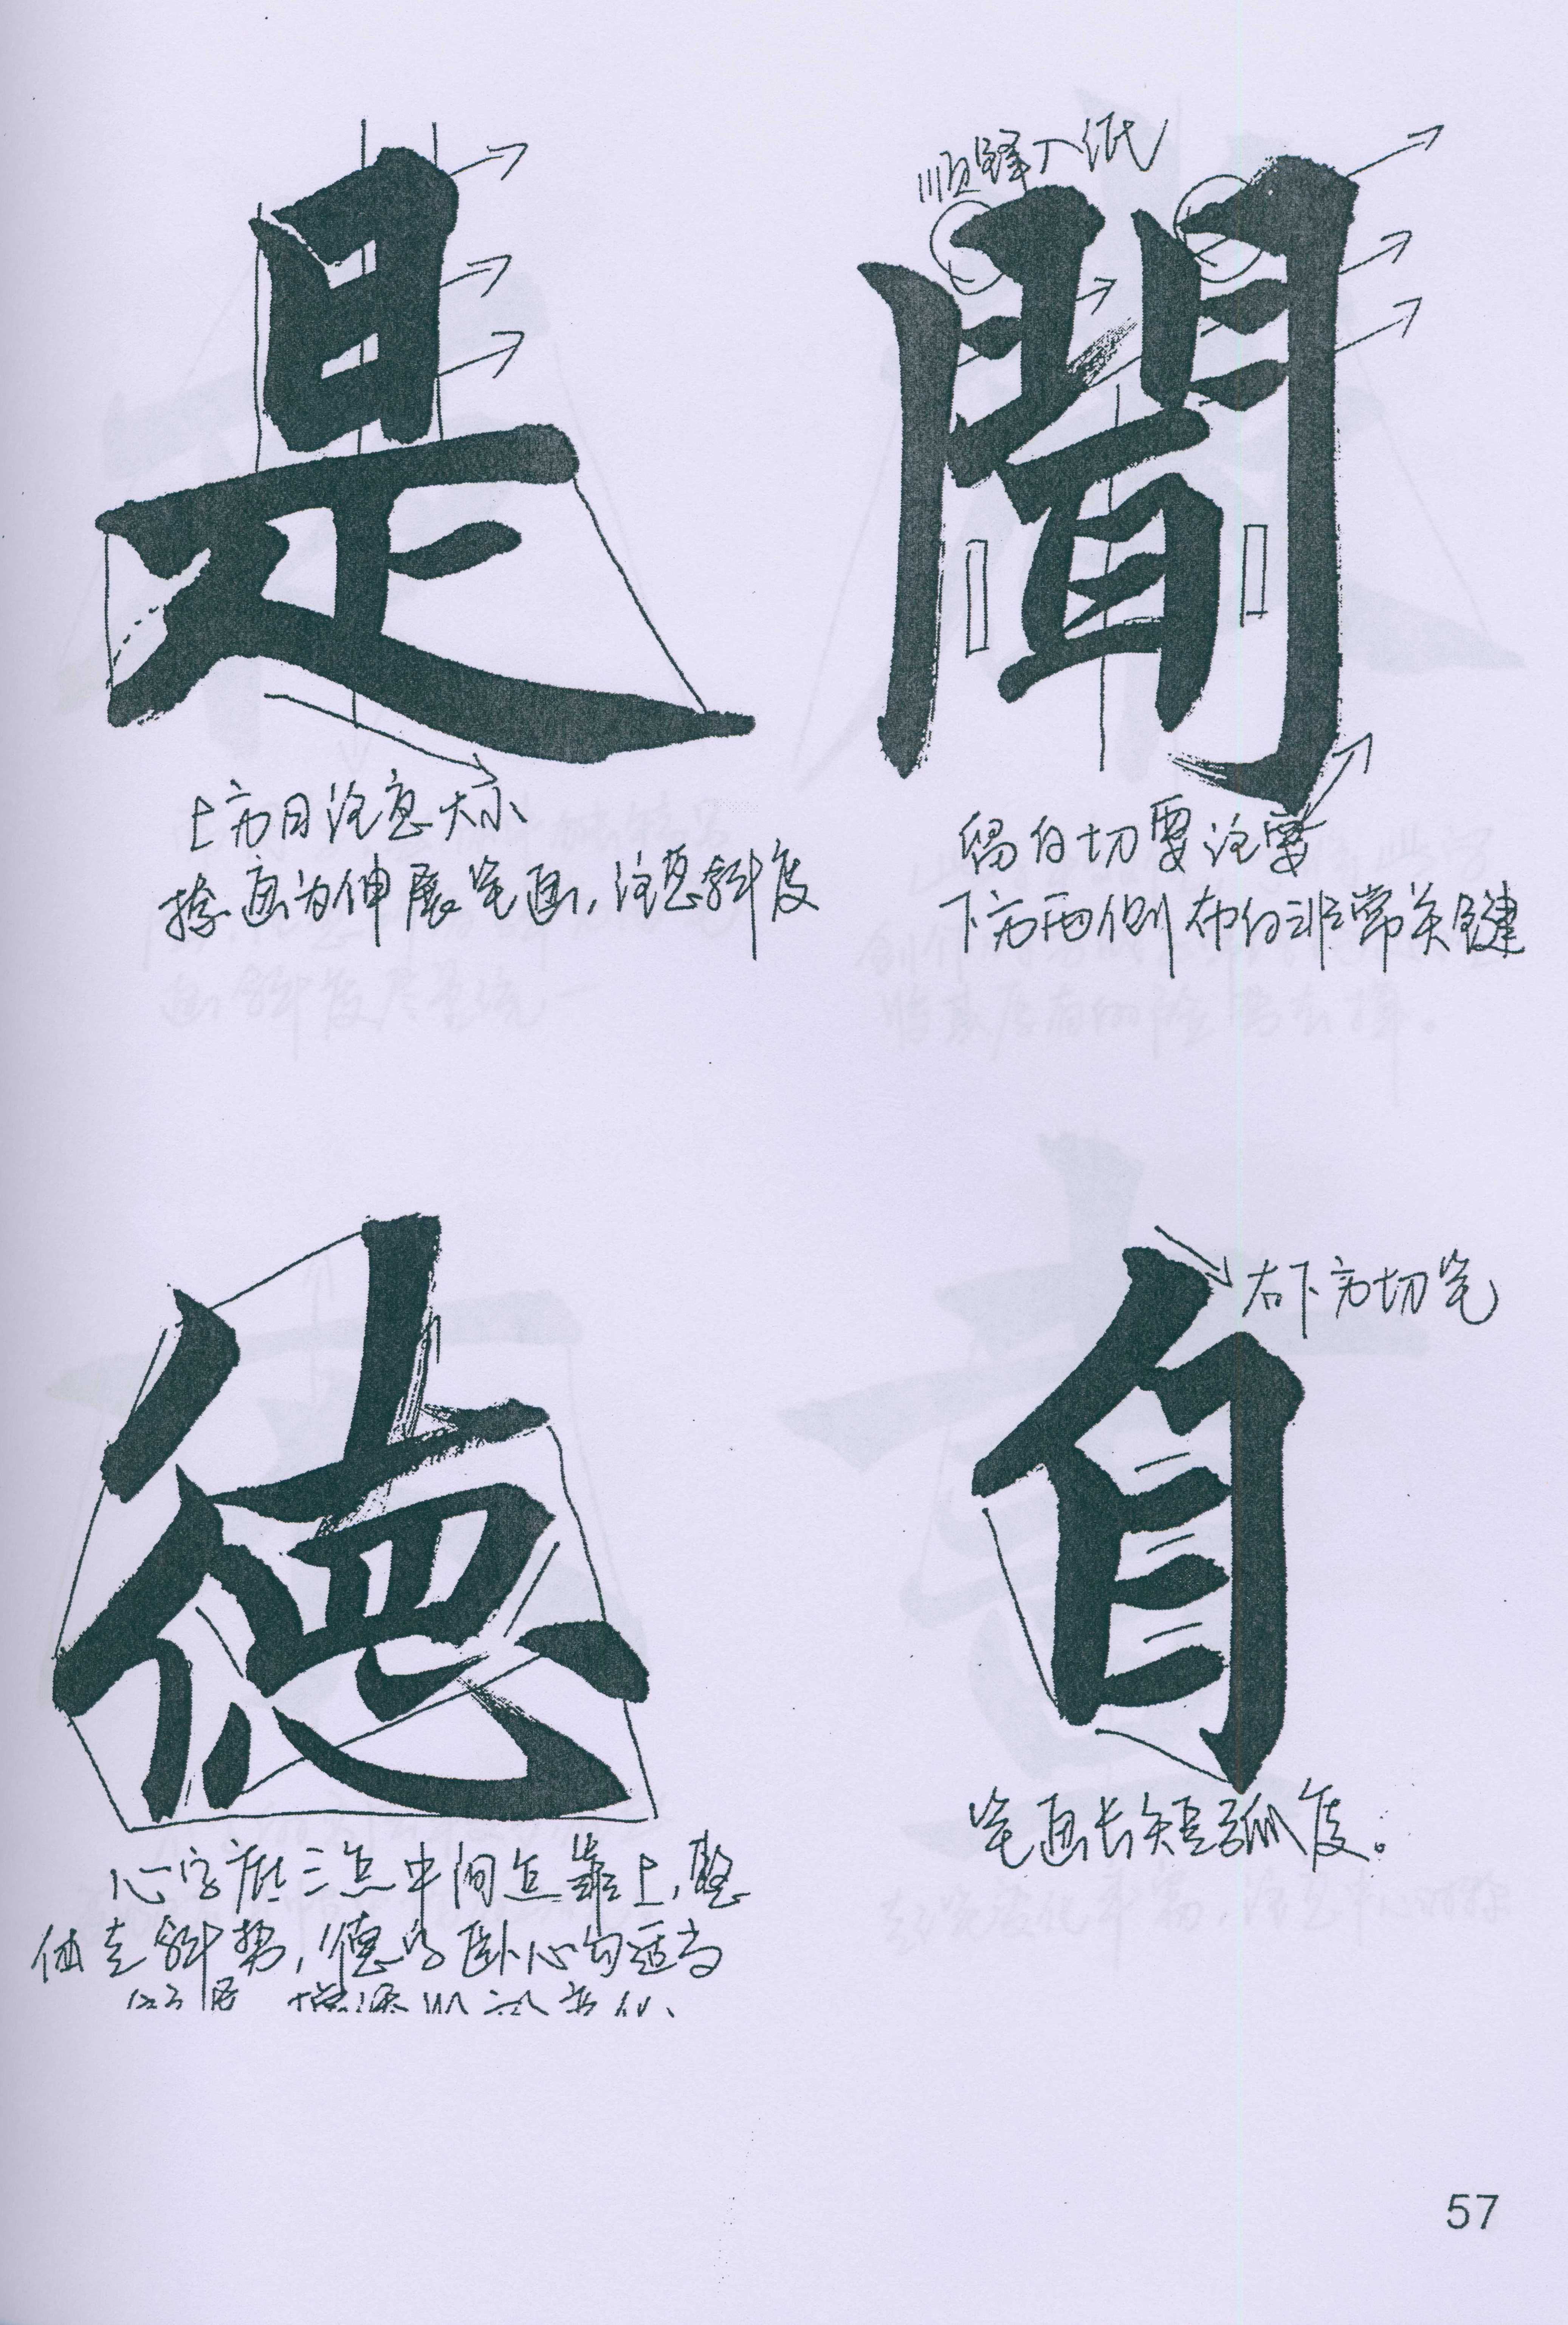 是
上方日注意大小
捺画为伸展笔画，注意斜度
順锋入纸
聞
留白切要注要
下方两侧布白非常关键
德
心字底三点中间点靠上，整
体走斜势，德字卧心勾适当
自
右下方切笔
笔画长短弧度。
57